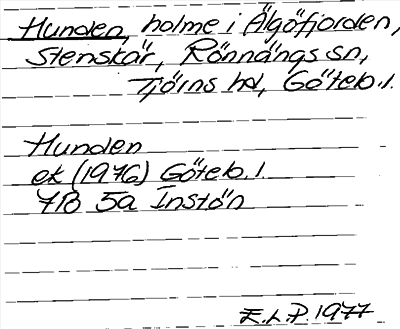 Hunden, holme i Älgöfjorden,
Stenskär, Rönnängs sn,
Tjörns hd, Göteb. l.
Hunden
ek (1976) Göteb. l
7B 5a Instön
E.L.P. 1977